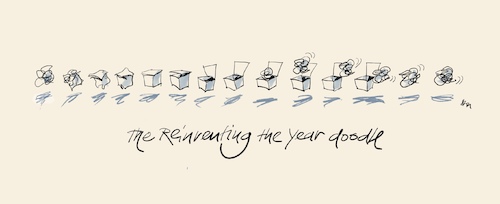 the Reinventing the year doodle